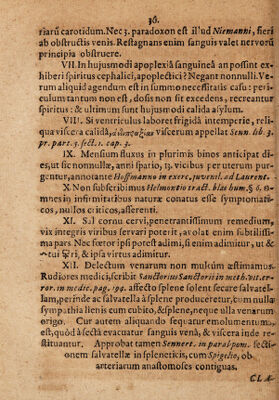 36.
riarũ carotidum. Nec 3. paradoxon est illud Niemanni, fieri
ab obstructis venis. Restagnans enim sanguis valet nervorũ
principia obstruere.
VII. In hujusmodi apoplexiâ sanguineâ an possint ex-
hiberi spiritus cephalici, apoplectici? Negant nonnulli. Ve-
rum aliquid agendum est in summo necessitatis casu: peri-
culum tantum non est, dosis non sit excedens, recreantur
spiritus: & ultimum sunt hujusmodi calida asylum.
VIII. Si ventriculus laboret frigidâ intemperie, reli-
qua viscera calidâ, viscerum appellat Senn. lib. 3.
pr. part. 3. sect. 1. cap. 3.
IX. Mensium fluxus in plurimis binos anticipat di-
es, ut sic nonnullæ, anni spatio, 13. vicibus per uterum pur-
gentur, annotante Hoffmanno in exerc. juvenil. ad Laurent.
X Non subscribimus Helmontio tract. blas hum. § 6. o-
mnes in infirmitatibus naturæ conatus esse symptomati-
cos, nullos criticos, asserenti.
XI. Sal cornu cervi, penetrantissimum remedium,
vix integris viribus servari poterit, avolat enim subtilissi-
ma pars. Nec fœtor ipsi potest adimi, si enim adimitur, ut &
tui & ipsa virtus adimitur.
XII. Delectum venarum non multum æstimamus.
Rudiores medici, scribit Sanctorius Sanctorii in meth. vit. er-
ror. in medic. pag. 194. affecto splene solent secare salvatel-
lam, perinde ac salvatella à splene produceretur, cum nulla
sympathia lienis cum cubito, & splene, neque ulla venarum
origo. Cur autem aliquando sequatur emolumentum,
est, quòd à sectâ evacuatur sanguis venâ, & viscera inde re-
stituantur. Approbat tamen Sennert. in paralpom. secti-
onem salvatellæ in spleneticis, cum Spigelio, ob
arteriarum anastomoses contiguas.
CLA-